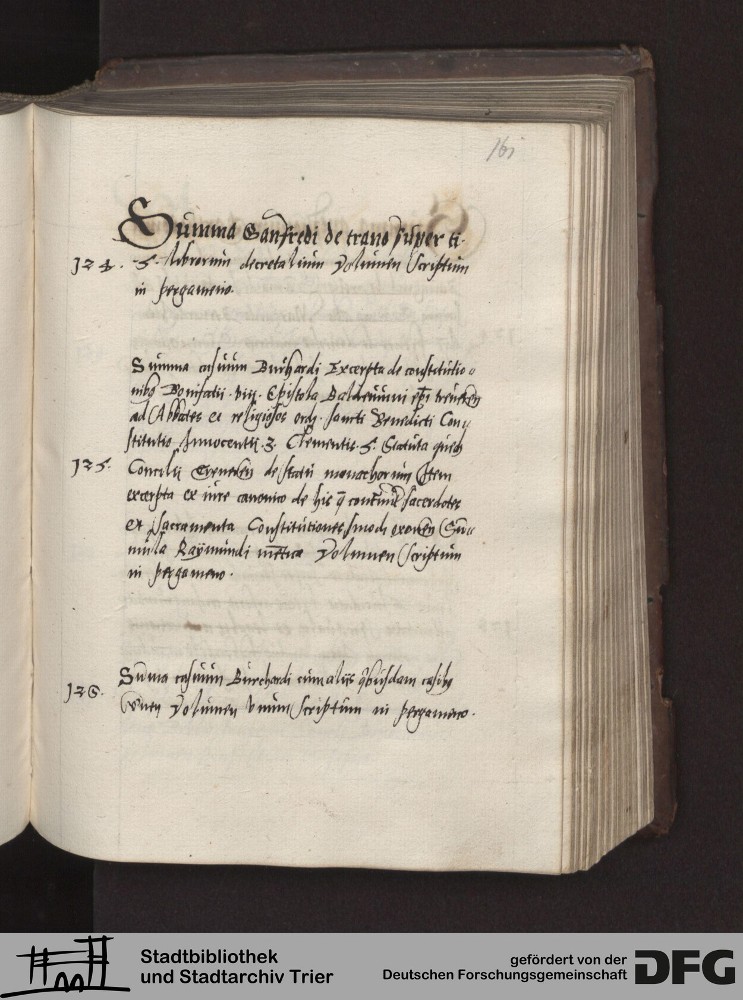 161
Summa Ganfredi de trano super ti-
124. 5. librorum decretalium Volumen Scriptum
in pergameno.
Summa casuum Burhardi Excerpta de constitutio
nibus Bonifatii . viij. Epistola Baldewini epi treueren
ad Abbates et religiosos ordis sancti Benedicti Con
stitutio Innocentii .3. Clementis .5. Statuta
125. Concilij de statu monachorum Item
excerpta ex iure canonico de his q sacerdotes
et sacramenta Constitutiones Sum
mula Raÿmundi metrica Volumen Scriptum
in pergameno.
126. Suma casuum Burchardi cum alijs qbusdam casibus
Volumen vnum Scriptum in pergameno.
Stadtbibliothek
und Stadtarchiv Trier
gefördert von der
Deutschen Forschungsgemeinschaft
DFG